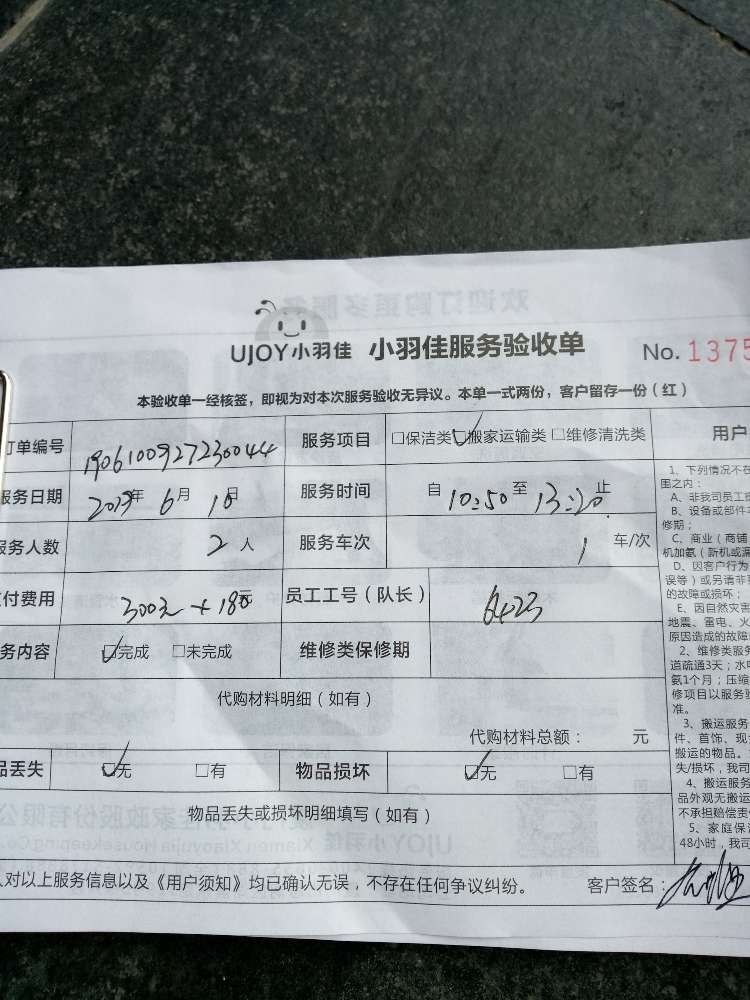 UJOY小羽佳 小羽佳服务验收单 No. 1375
本验收单一经核签，即视为对本次服务验收无异议。本单一式两份，客户留存一份（红）
订单编号 1906100927230044 服务项目 □保洁类 ☑搬家运输类 □维修清洗类 用户
服务日期 2019年 6月 10日 服务时间 自 10:50 至 13:20 止
服务人数 2 人 服务车次 1 车/次
付费用 300元 + 180元 员工工号（队长） 6423
务内容 ☑完成 □未完成 维修类保修期
代购材料明细（如有）
代购材料总额： 元
品丢失 ☑无 □有 物品损坏 ☑无 □有
物品丢失或损坏明细填写（如有）
人对以上服务信息以及《用户须知》均已确认无误，不存在任何争议纠纷。 客户签名：
1、下列情况不在
围之内：
A、非我司员工
B、设备或部件
修期；
C、商业（商铺
机加氨（新机或漏
D、因客户行为
误等）或另请非
的故障或损坏；
E、因自然灾害
地震、雷电、火
原因造成的故障
2、维修类服务
道疏通3天；水电
氨1个月；压缩
修项目以服务
准。
3、搬运服务
件、首饰、现
搬运的物品。
失/损坏，我司
4、搬运服务
品外观无搬运
不承担赔偿责
5、家庭保洁
48小时，我司